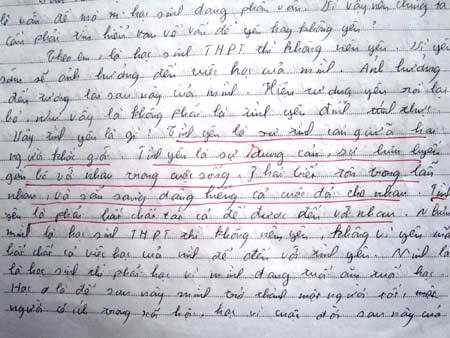 là vấn đề mà mỗi học sinh đang phân vân. Vì vậy nên chúng ta
cần phải tìm hiểu xem về vấn đề yêu hay không yêu?
Theo em, là học sinh THPT thì không nên yêu. Vì yêu
sớm sẽ ảnh hưởng đến việc học của mình. Ảnh hưởng
đến tương lai sau này của mình. Hiện tượng yêu rồi lại
bỏ, như vậy là không phải là tình yêu đích thực
Vậy tình yêu là gì? Tình yêu là sự tình cảm giữa hai
người khác giới. Tình yêu là sự dung cảm, sự lưu luyến
gắn bó với nhau trong cuộc sống, phải biết tôn trọng lẫn
nhau, và sẵn sàng dâng hiến cả cuộc đời cho nhau. Tình
yêu là phải bất chất tất cả để được đến với nhau. Nhưng
mình là học sinh THPT thì không nên yêu. Không vì yêu mà
bất chất cả việc học của mình để đến với tình yêu. Mình là
là học sinh thì phải học vì mình đang tuổi ăn tuổi học.
Học là để sau này mình trở thành một người tốt, một
người có ích trong xã hội, học vì cuộc đời sau này của